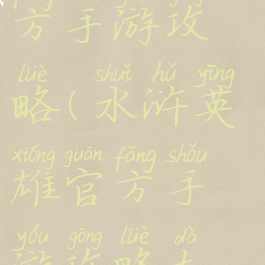 方手游攻
lüè shuǐ hǔ yīng
略(水浒英
xióng guān fāng shǒu
雄官方手
yóu gōng lüè dà
游攻略大